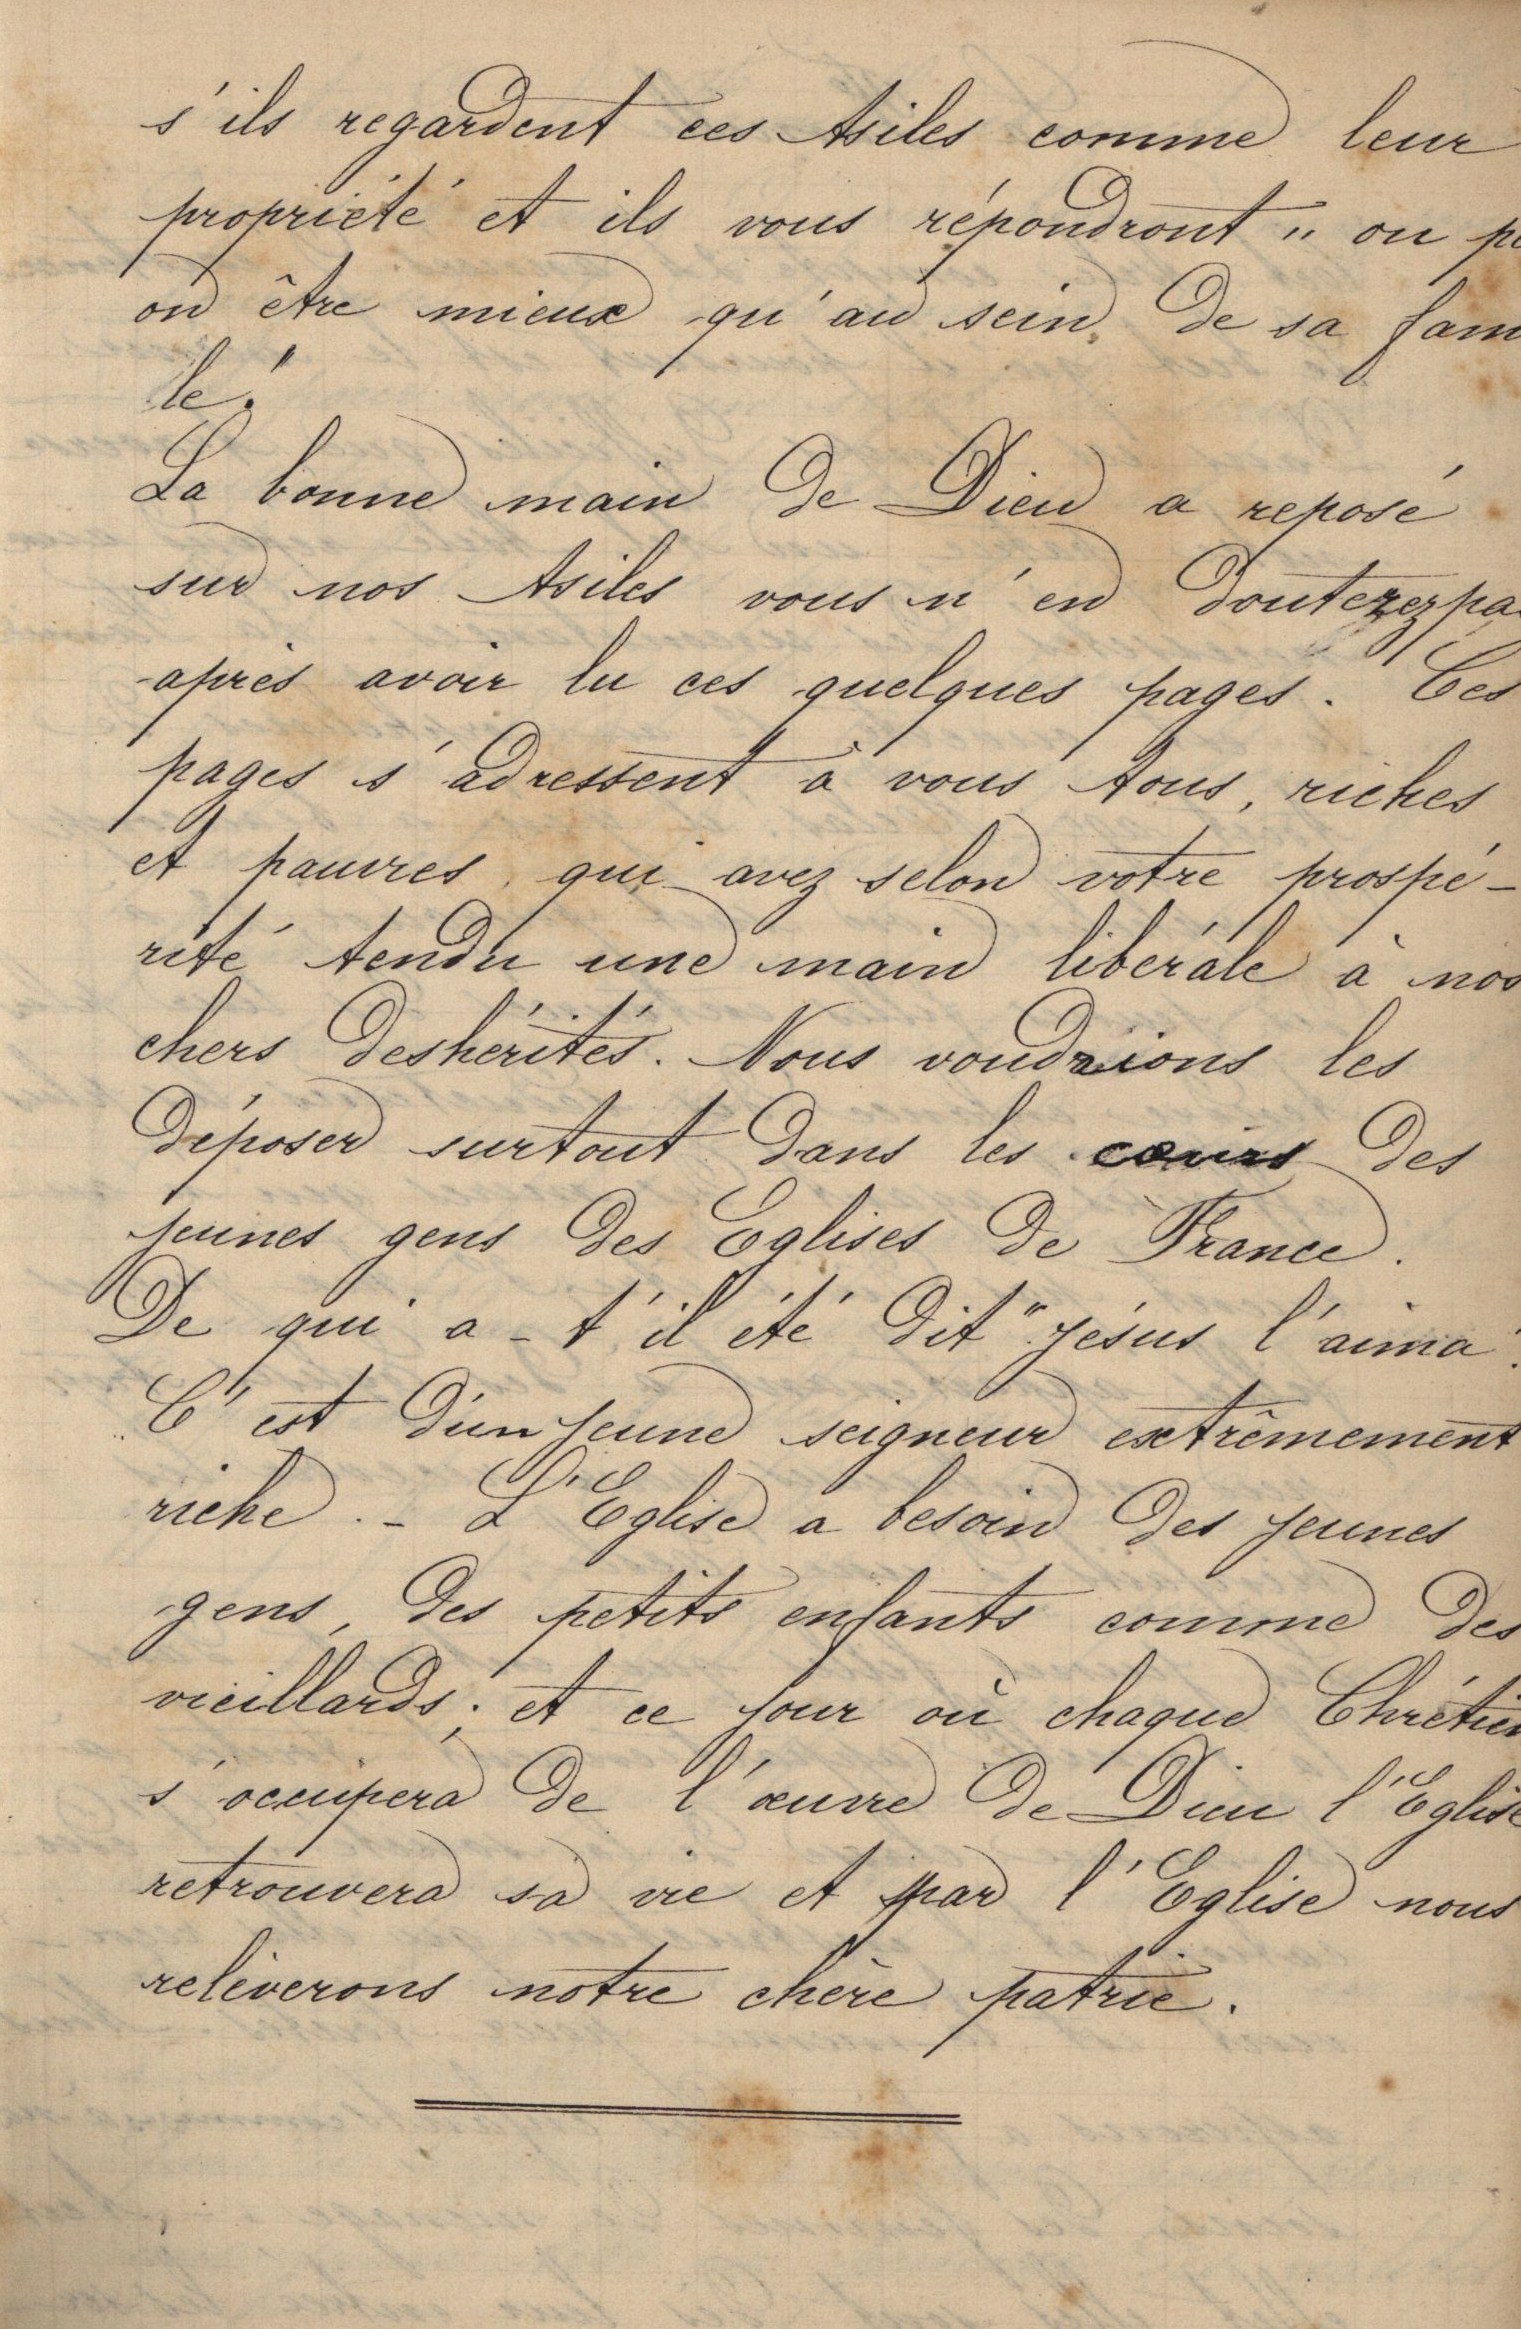 s'ils regardent ces Asiles comme leur
propriété et ils vous répondront " ou pe
on être mieux qu'au sein de sa fam
le."
La bonne main de Dieu a reposé
sur nos Asiles vous n'en douterez pa
après avoir lu ces quelques pages. Ces
pages s'adressent à vous tous, riches
et pauvres, qui avez selon votre prospé-
rité tendu une main libérale à nos
chers deshérités. Nous voudrions les
déposer surtout dans les cœurs des
jeunes gens des Eglises de France.
De qui a-t'il été dit "Jésus l'aima".
C'est d'un jeune seigneur extrêmement
riche. - L'Eglise a besoin des jeunes
gens, des petits enfants comme des
vieillards; et ce jour où chaque Chrétien
s'occupera de l'œuvre de Dieu l'Eglise
retrouvera sa vie et par l'Eglise nous
relèverons notre chère patrie.